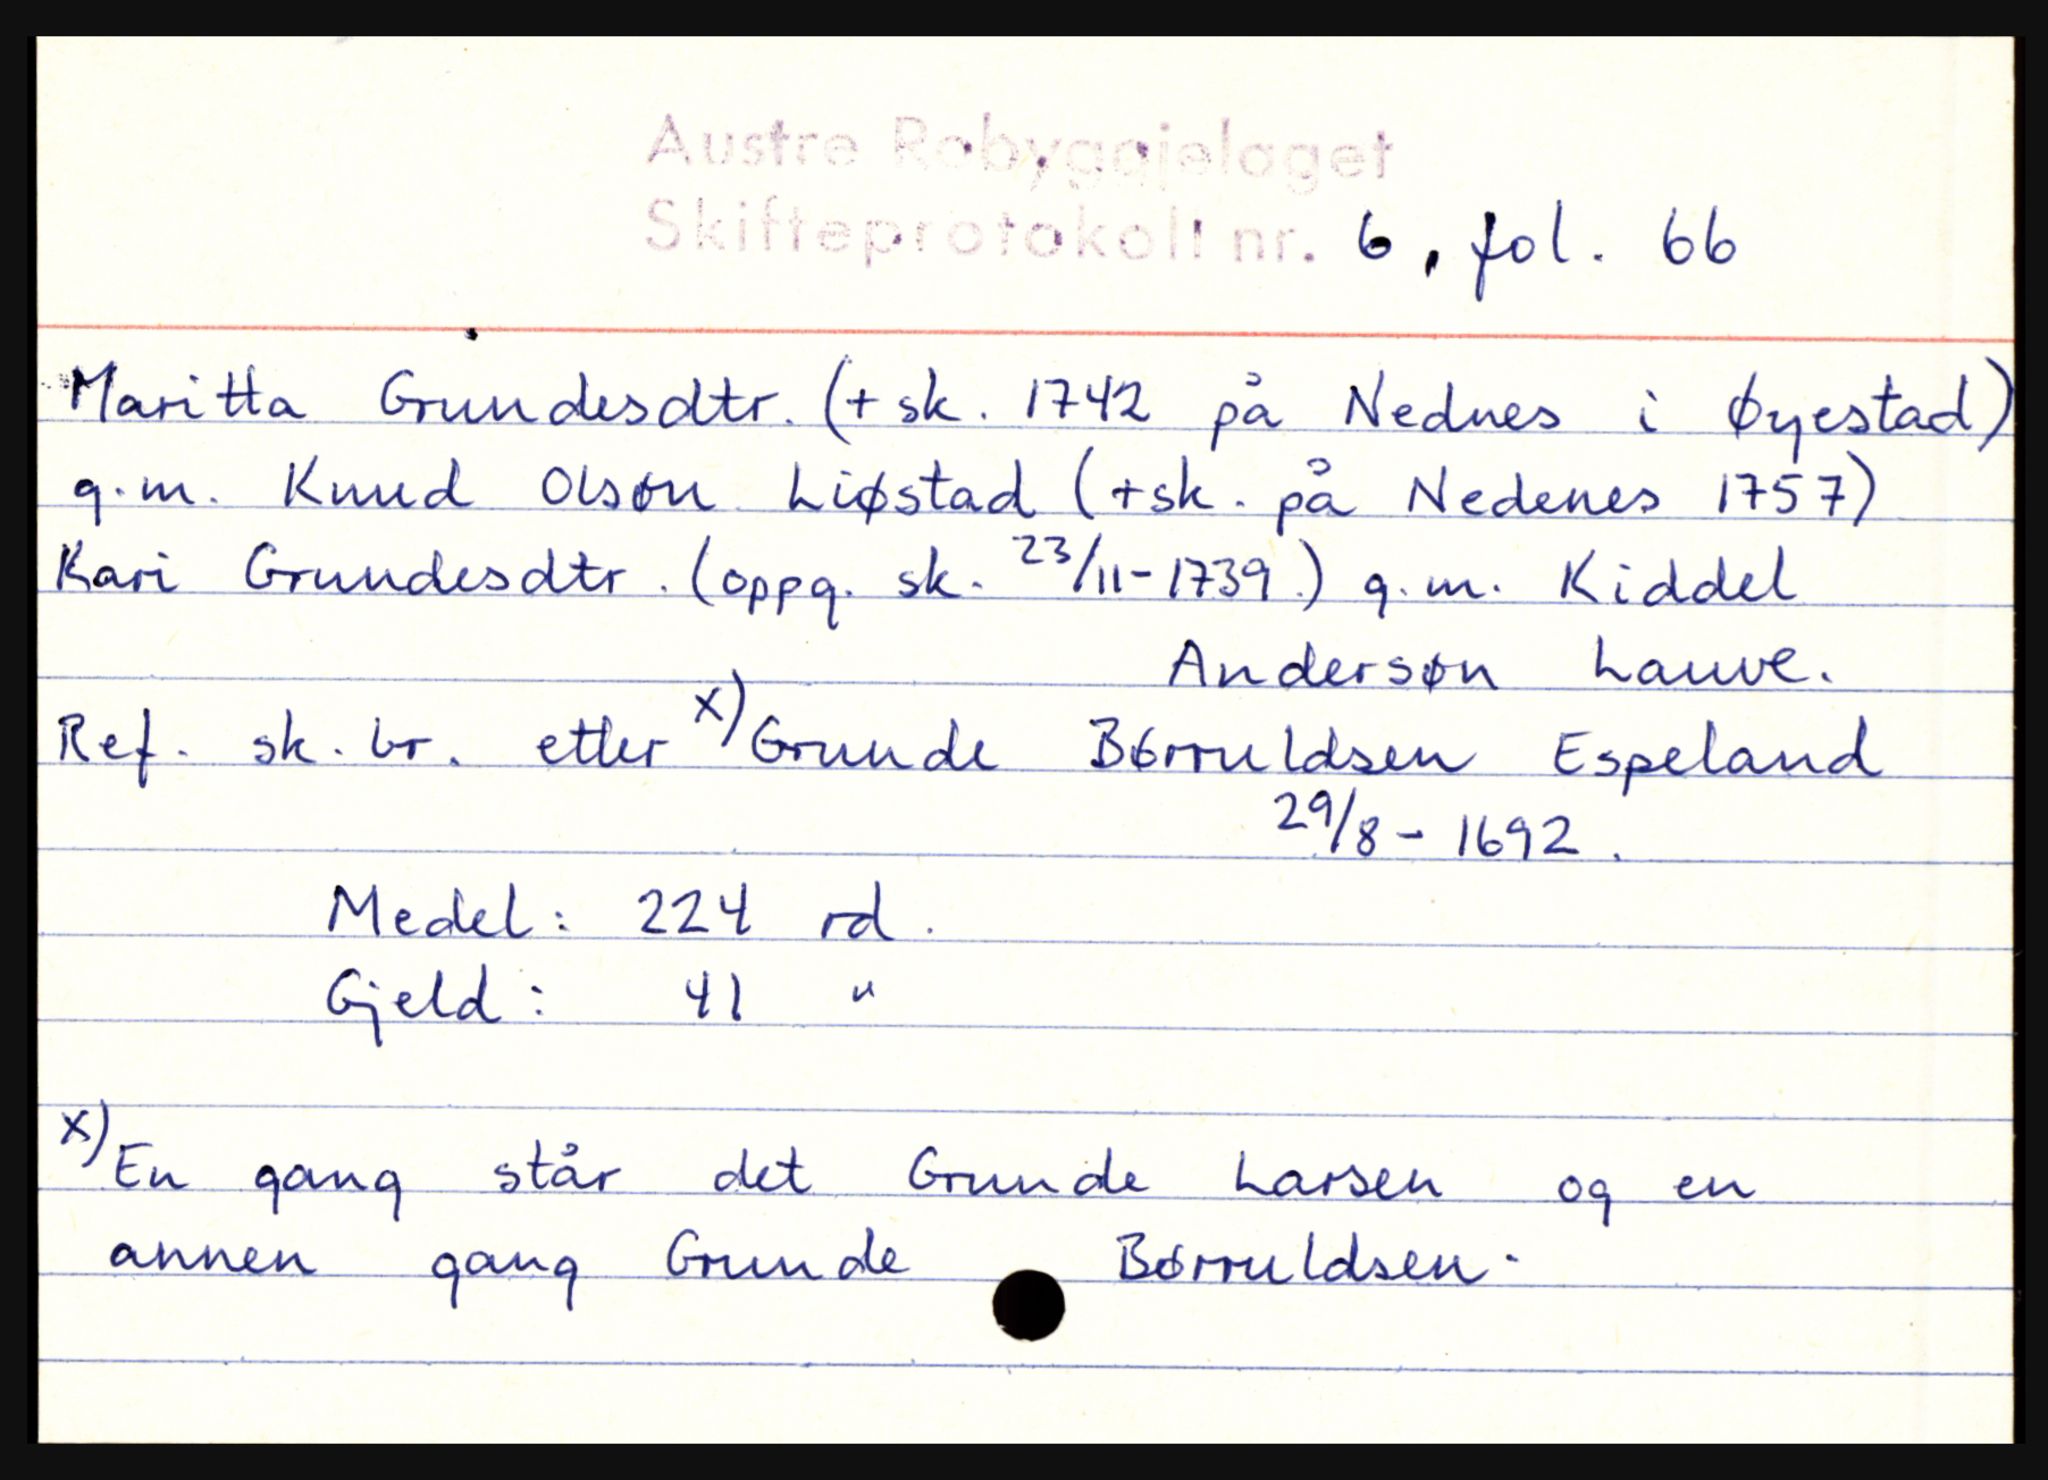 Austre Robyggjelaget
Skifteprotokoll nr. 6, fol. 66
Maritta Grundesdtr. (+ sk. 1742 på Nednes i Øyestad)
g.m. Knud Olsøn Liøstad (+ sk. på Nedenes 1757)
Kari Grundesdtr. (oppg. sk. 23/11-1739.) g.m. Kiddel
Andersøn Lauve.
Ref. sk. br. etter x) Grunde Børruldsen Espeland
29/8 - 1692.
Medel: 224 rd.
Gjeld: 41 "
x) En gang står det Grunde Larsen og en
annen gang Grunde Børruldsen.